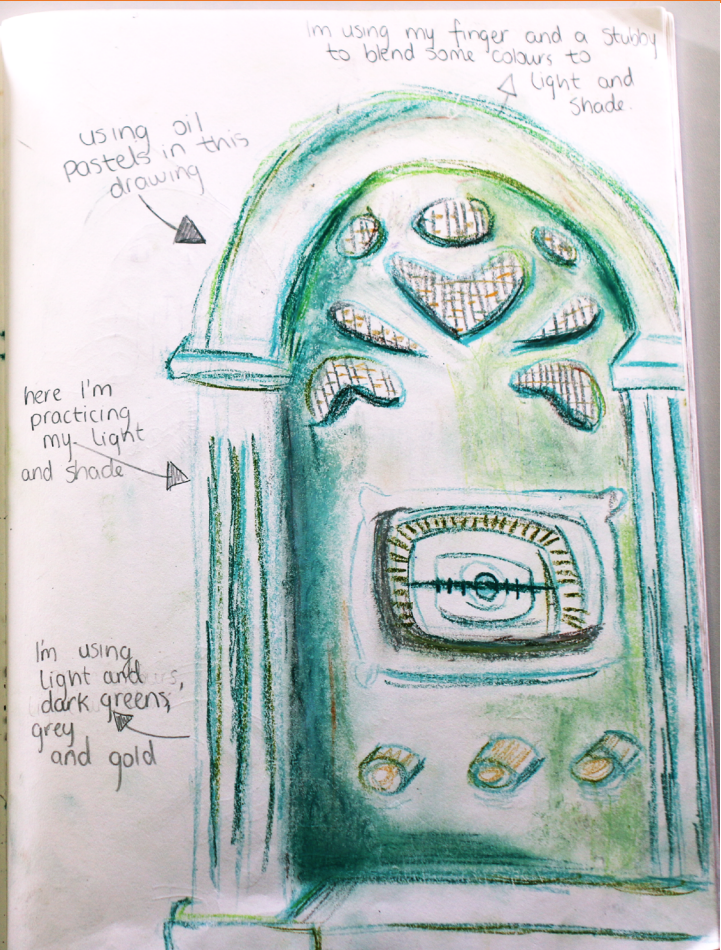 Im using my finger and a stubby
to blend some colours to
light and
shade.
using oil
pastels in this
drawing
here I'm
practicing
my light
and shade
I'm using
light and
dark greens,
grey
and gold